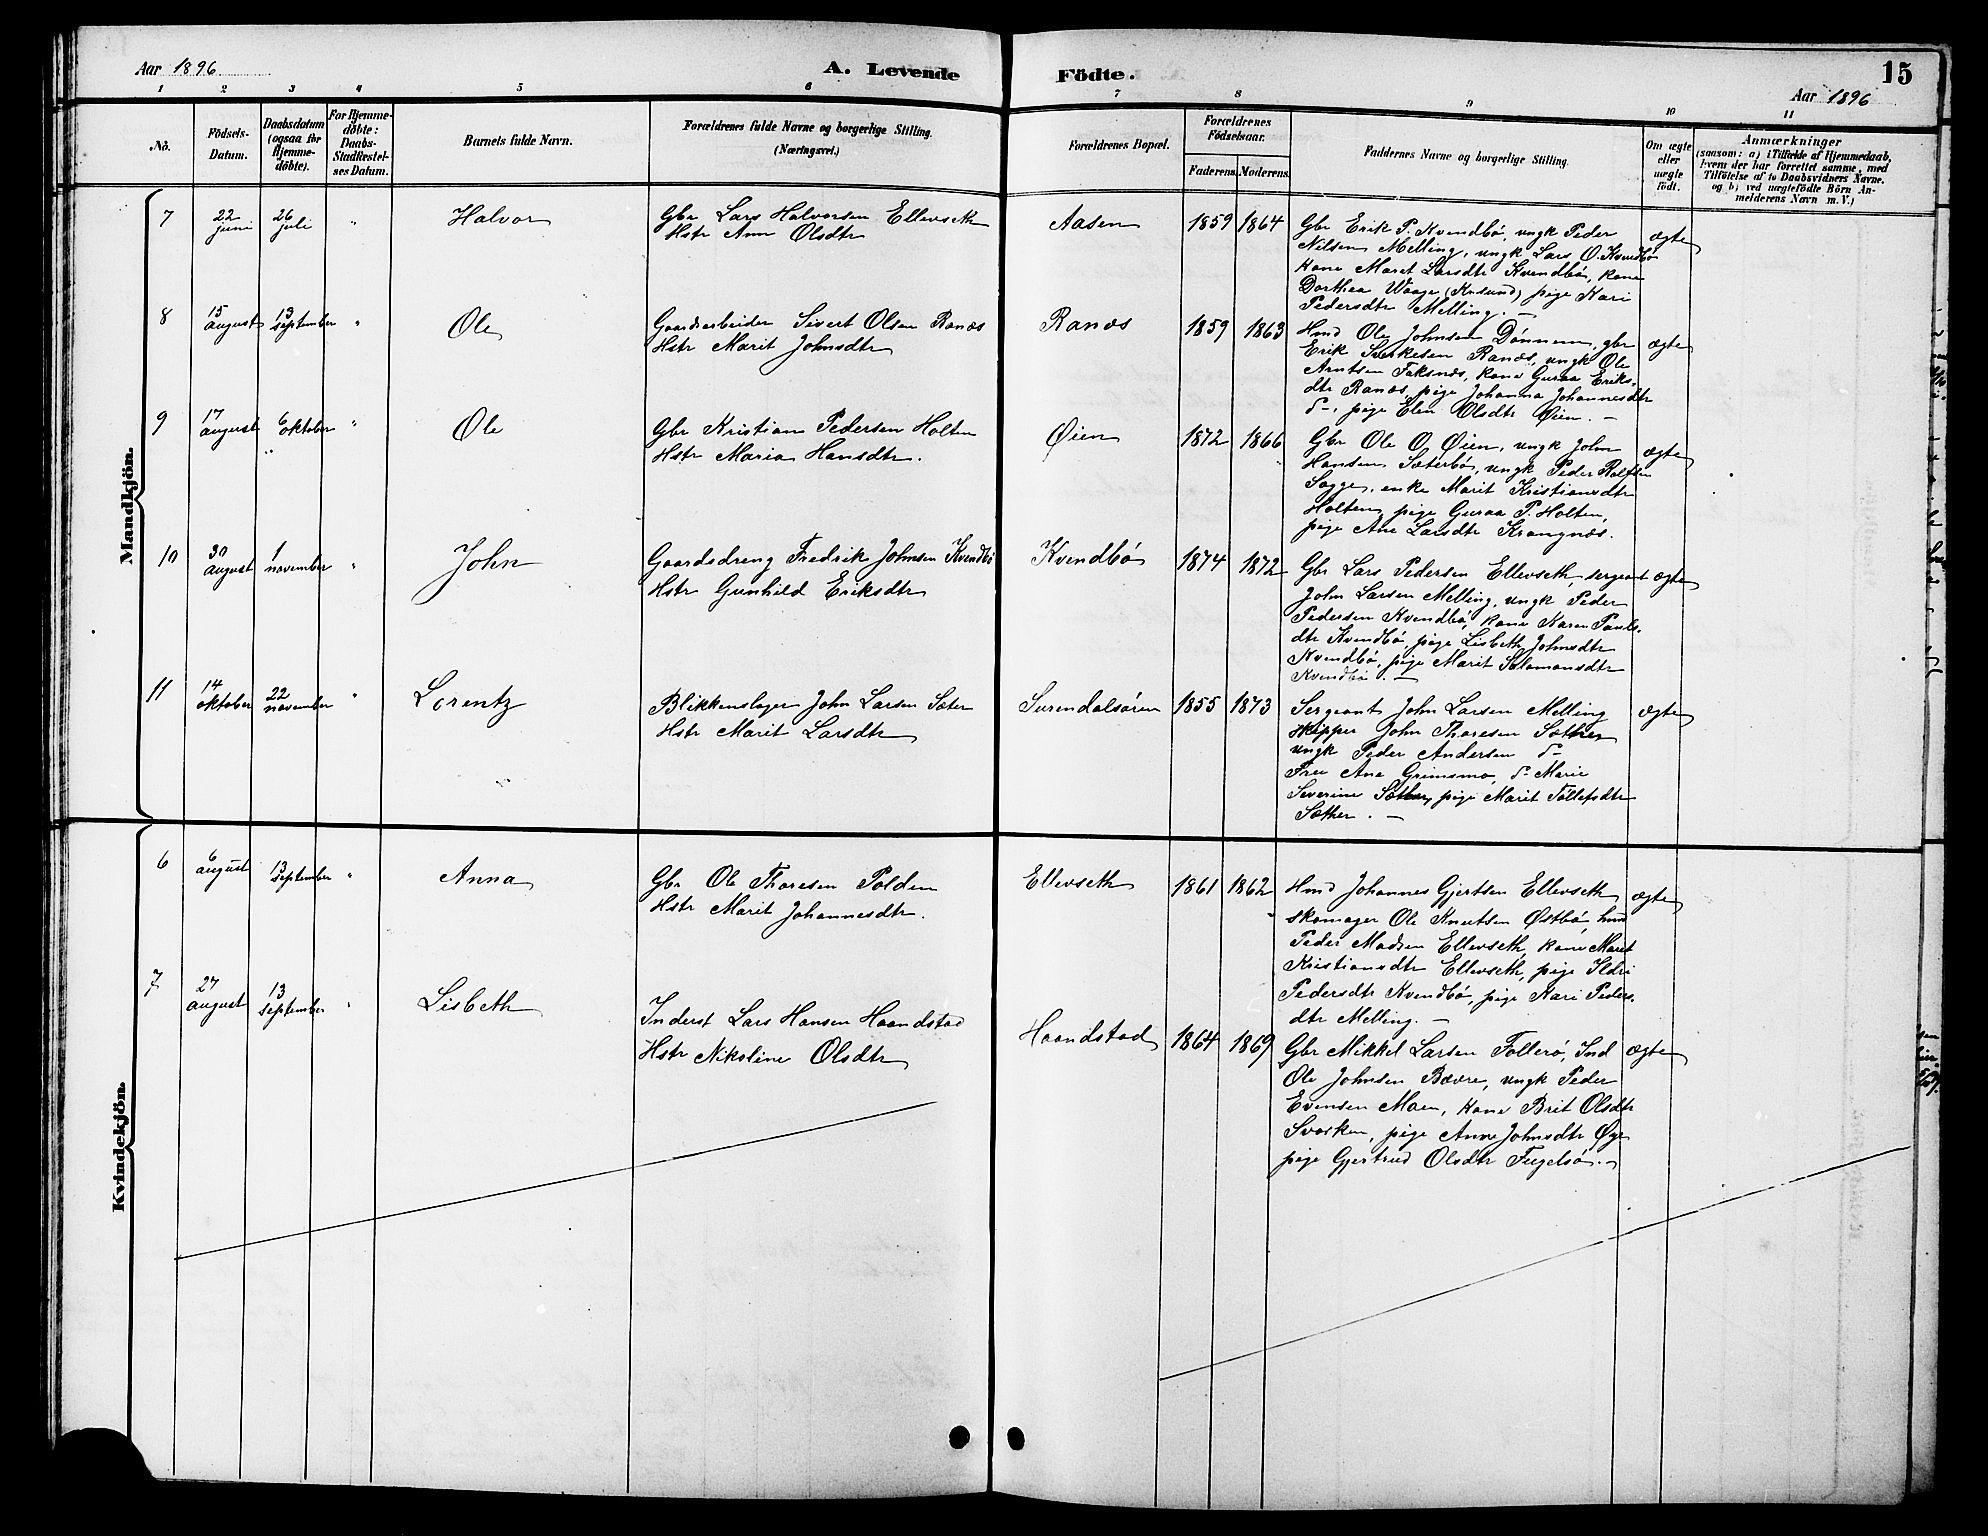 Aar 1896
A. Levende
Födte.
15
Aar 1896
1 2 3 4 5 6 7 8 9 10 11
No.
Födsels-
Datum.
Daabsdatum
(ogsaa for
Hjemme-
döbte).
For Hjemme-
döbte:
Daabs-
Stadfæstel-
ses Datum.
Barnets fulde Navn.
Forældrenes fulde Navne og borgerlige Stilling.
(Næringsvei.)
Forældrenes Bopæl.
Forældrenes
Födselsaar.
Faderens. Moderens.
Faddernes Navne og borgerlige Stilling.
Om ægte
eller
uægte
født.
Anmærkninger
(saasom: a) i Tilfælde af Hjemmedaab,
hvem der har forrettet samme, med
Tilføielse af to Daabsvidners Navne.
og b) ved uægtefødte Börn An-
melderens Navn m. V.)
Mandkjön.
7
22
juni
26
juli
"
Halvor
Gbr Lars Halvorsen Ellevseth
Hstr Ann Olsdtr
Aasen
1859 1864
Gbr Erik P. Kvendbö, ungk Peder
Nilsen Melling, ungk Lars O. Kvendbö
Kone Maret Larsdtr Kvendbö, kone
Dorthea Waage (Krsund) pige Kari
Pedersdtr Melling. —
ægte
8
15
august
13
september
"
Ole
Gaardarbeider Sivert Olsen Ranæs
Hstr Marit Johnsdtr
Ranæs
1859 1863
Hmd Ole Johnsen Dönnem, gbr
Erik Sverkesen Ranæs, ungk Ole
Arntsen Faksnæs, kone Guraa Eriks-
dtr Ranæs, pige Johanna Johannesdtr
d-, pige Elen Olsdtr Øien. —
ægte
9
17
august
6
oktober
"
Ole
Gbr Kristian Pedersen Holten
Hstr Maria Hansdtr.
Øien
1872 1866
Gbr Ole O. Øien, ungk John
Hansen Sæterbö, ungk Peder Rolfsen
Sogge, enke Marit Kristiansdtr
Holten, pige Guraa P. Holten,
pige Ane Larsdtr Krangnæs.
ægte
10
30
august
1
november
"
John
Gaardsdreng Fredrik Johnsen Kvendbö
Hstr Gunhild Eriksdtr
Kvendbö
1874 1872
Gbr Lars Pedersen Ellevseth, sergeant
John Larsen Melling, ungk Peder
Pedersen Kvendbö, kone Karen Pauls-
dtr Kvendbö, pige Lisbeth Johnsdtr
Kvendbö, pige Marit Salomonsdtr
Kvendbö. —
ægte
11
14
oktober
22
november
"
Lorentz
Blikkenslager John Larsen Sæter
Hstr Marit Larsdtr
Surendalsören
1855 1873
Sergeant John Larsen Melling
skipper John Thoresen Sæther
ungk Peder Andersen d-
Frue Ane Grimsmo, d- Marie
Severine Sæther, pige Marit Tollefsdtr
Sæther. —
ægte
Kvindekjön.
6
6
august
13
september
"
Anna
Gbr Ole Thoresen Polden
Hstr Marit Johannesdtr.
Ellevseth
1861 1862
Hmd Johannes Gjertsen Ellevseth
skomager Ole Knutsen Østbö, hmd
Peder Madsen Ellevseth, kone Maret
Kristiansdtr Ellevseth, pige Ildri
Pedersdtr Kvendbö, pige Kari Peders-
dtr Melling. —
ægte
7
27
august
13
september
"
Lisbeth
Inderst Lars Hansen Haandstad
Hstr Nikoline Olsdtr
Haandstad
1864 1869
Gbr Mikkel Larsen Tollerö, Ind
Ole Johnsen Bævre, ungk Peder
Evensen Moen, kone Brit Olsdtr
Svorken, pige Anne Johnsdtr Øye
pige Gjertrud Olsdtr Fugelsö. —
ægte